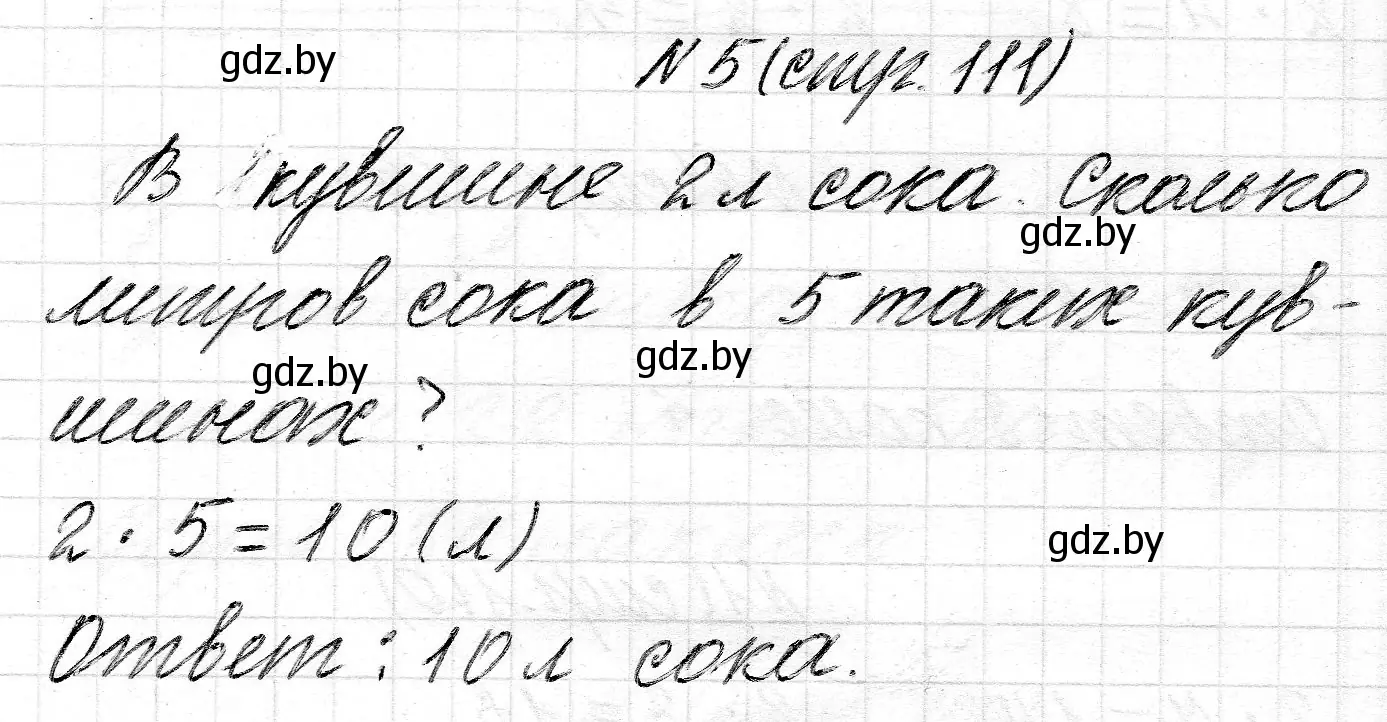 gdz.by
N 5 (стр. 111)
В кувшине 2 л сока. Сколько
gdz.by
литров сока в 5 таких кув-
gdz.by gdz.by
шинах?
2 · 5 = 10 (л)
gdz.by
Ответ: 10 л сока.